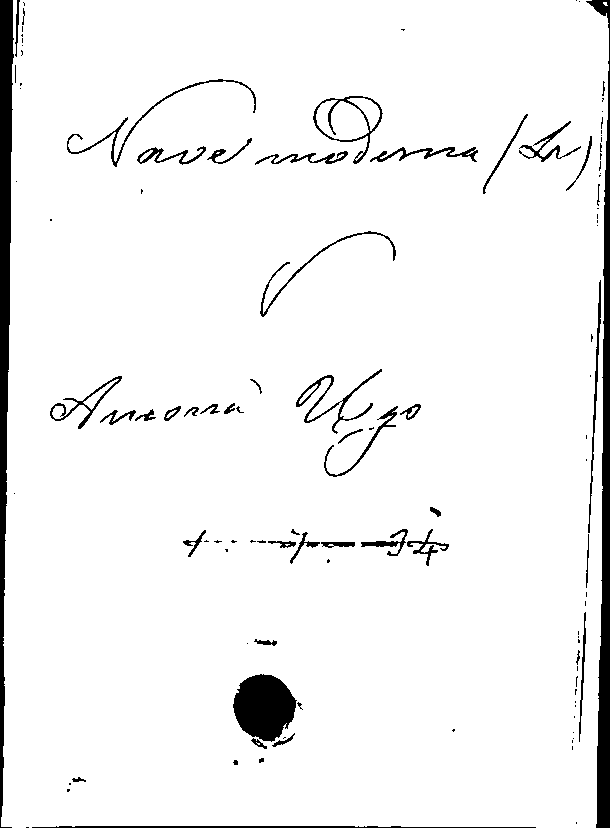 Nave moderna (La)
V
Ancona Ugo
1 . 7 . 34